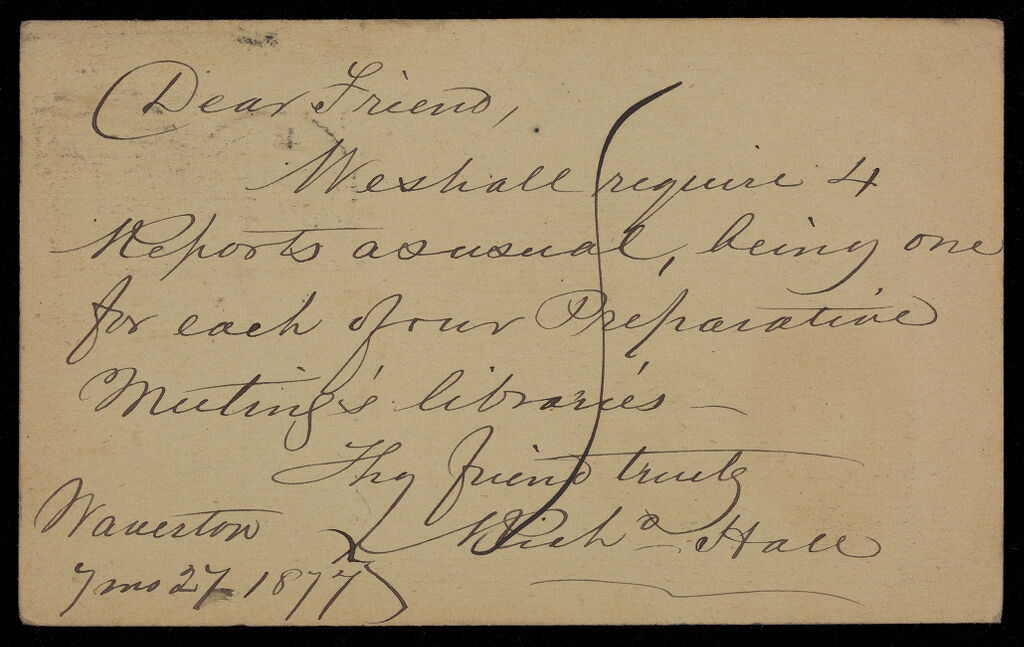 Dear Friend,
We shall require 4
Reports as usual, being one
for each of our Preparative
Meeting's libraries –
Thy friend truly
Richd Hall
Waverton
7 mo 27 1877